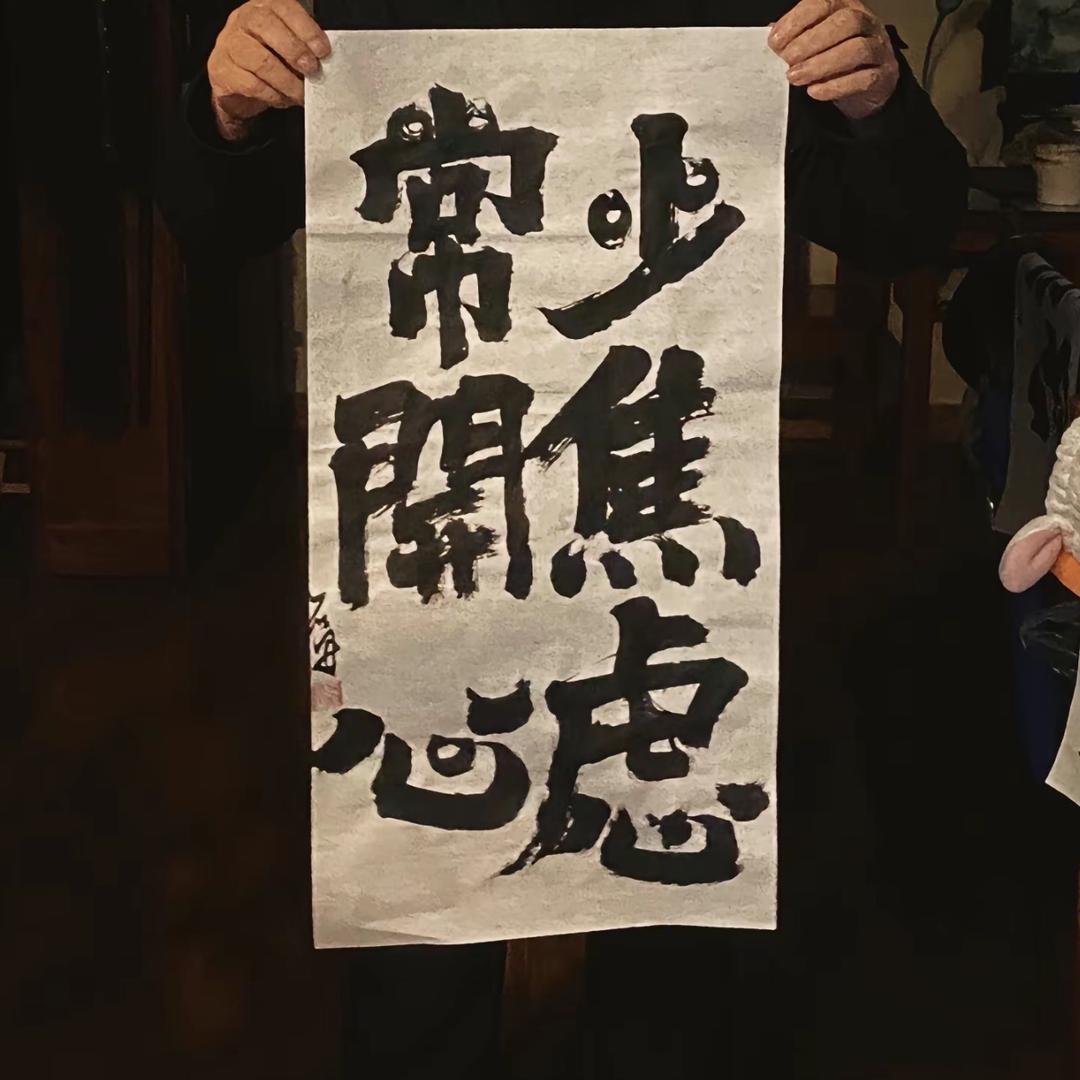 少焦虑
常開心